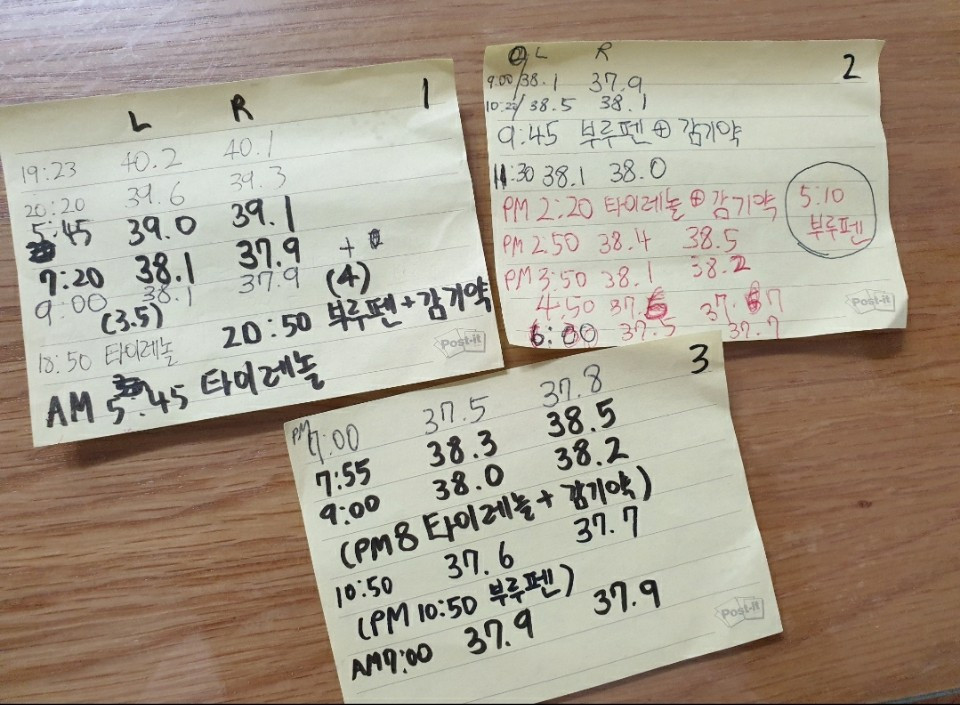 1
L R
19:23 40.2 40.1
20:20 39.6 39.3
5:45 39.0 39.1
7:20 38.1 37.9 +
9:00 38.1 37.9 (4)
(3.5) 20:50 부루펜+감기약
18:50 타이레놀
AM 5:45 타이레놀
Post-it
2
L R
9:00/38.1 37.9
10:22/38.5 38.1
9:45 부루펜 ⊕ 감기약
11:30 38.1 38.0
PM 2:20 타이레놀 ⊕ 감기약
PM 2:50 38.4 38.5
PM 3:50 38.1 38.2
4:50 37.6 37.7
6:00 37.5 37.7
5:10
부루펜
Post-it
3
PM 7:00 37.5 37.8
7:55 38.3 38.5
9:00 38.0 38.2
(PM 8 타이레놀+감기약)
10:50 37.6 37.7
(PM 10:50 부루펜)
AM 7:00 37.9 37.9
Post-it